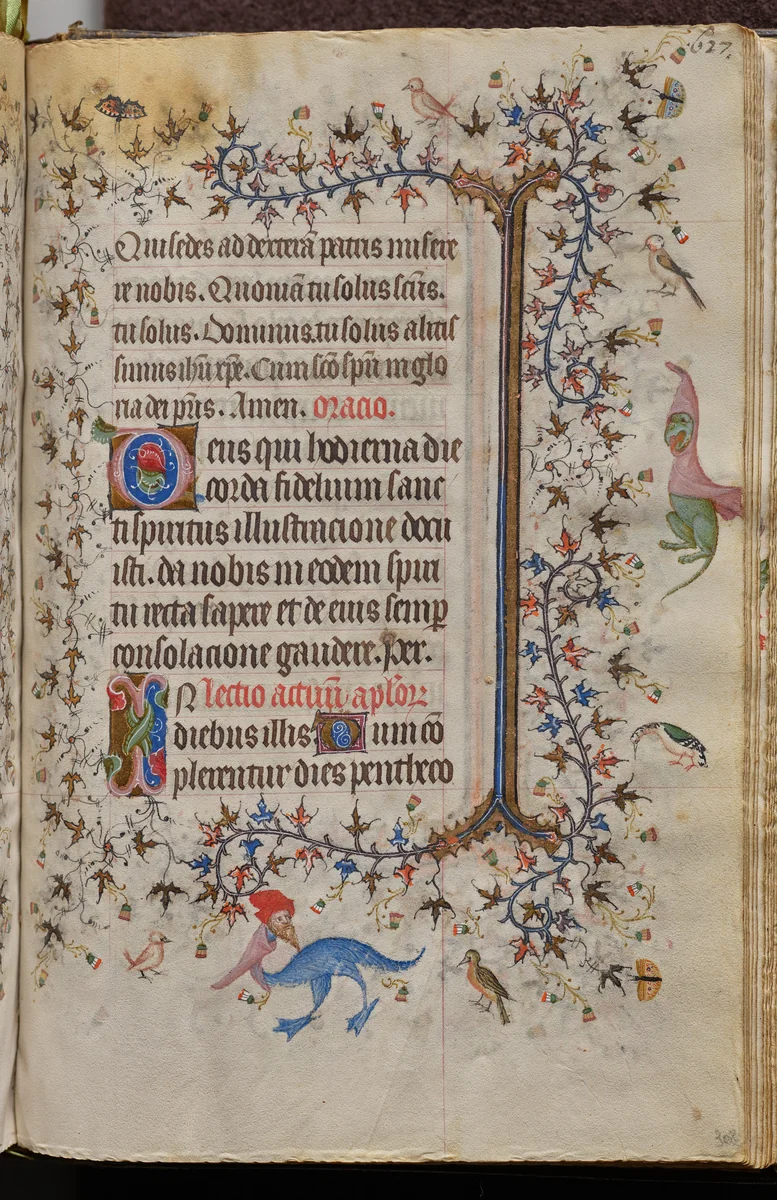 627.
Qui sedes ad dexterā patris misere
re nobis. Quoniā tu solus scūs.
tu solus. Dominus. tu solus altis
simus ihū xpē. Cum scō spū in glo
ria dei pr̄is. Amen. oracio.
Deus qui hodierna die
corda fidelium sanc
ti spiritus illustracione docu
isti. da nobis in eodem spiri
tu recta sapere et de eius semꝑ
consolacione gaudere. Per.
IN lectio actuū aplōꝝ
diebus illis Dum cō
plerentur dies pentheco
308